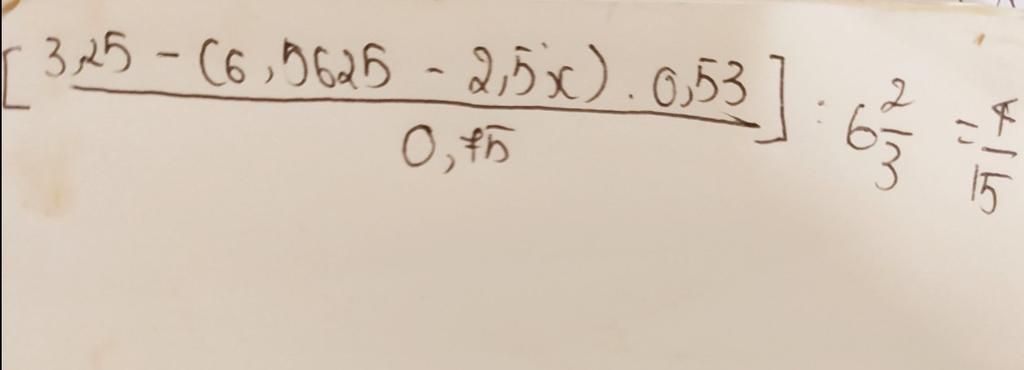 [ 3,25 - (6,5625 - 2,5x) . 0,53 / 0,75 ] : 6 2/3 = 7/15